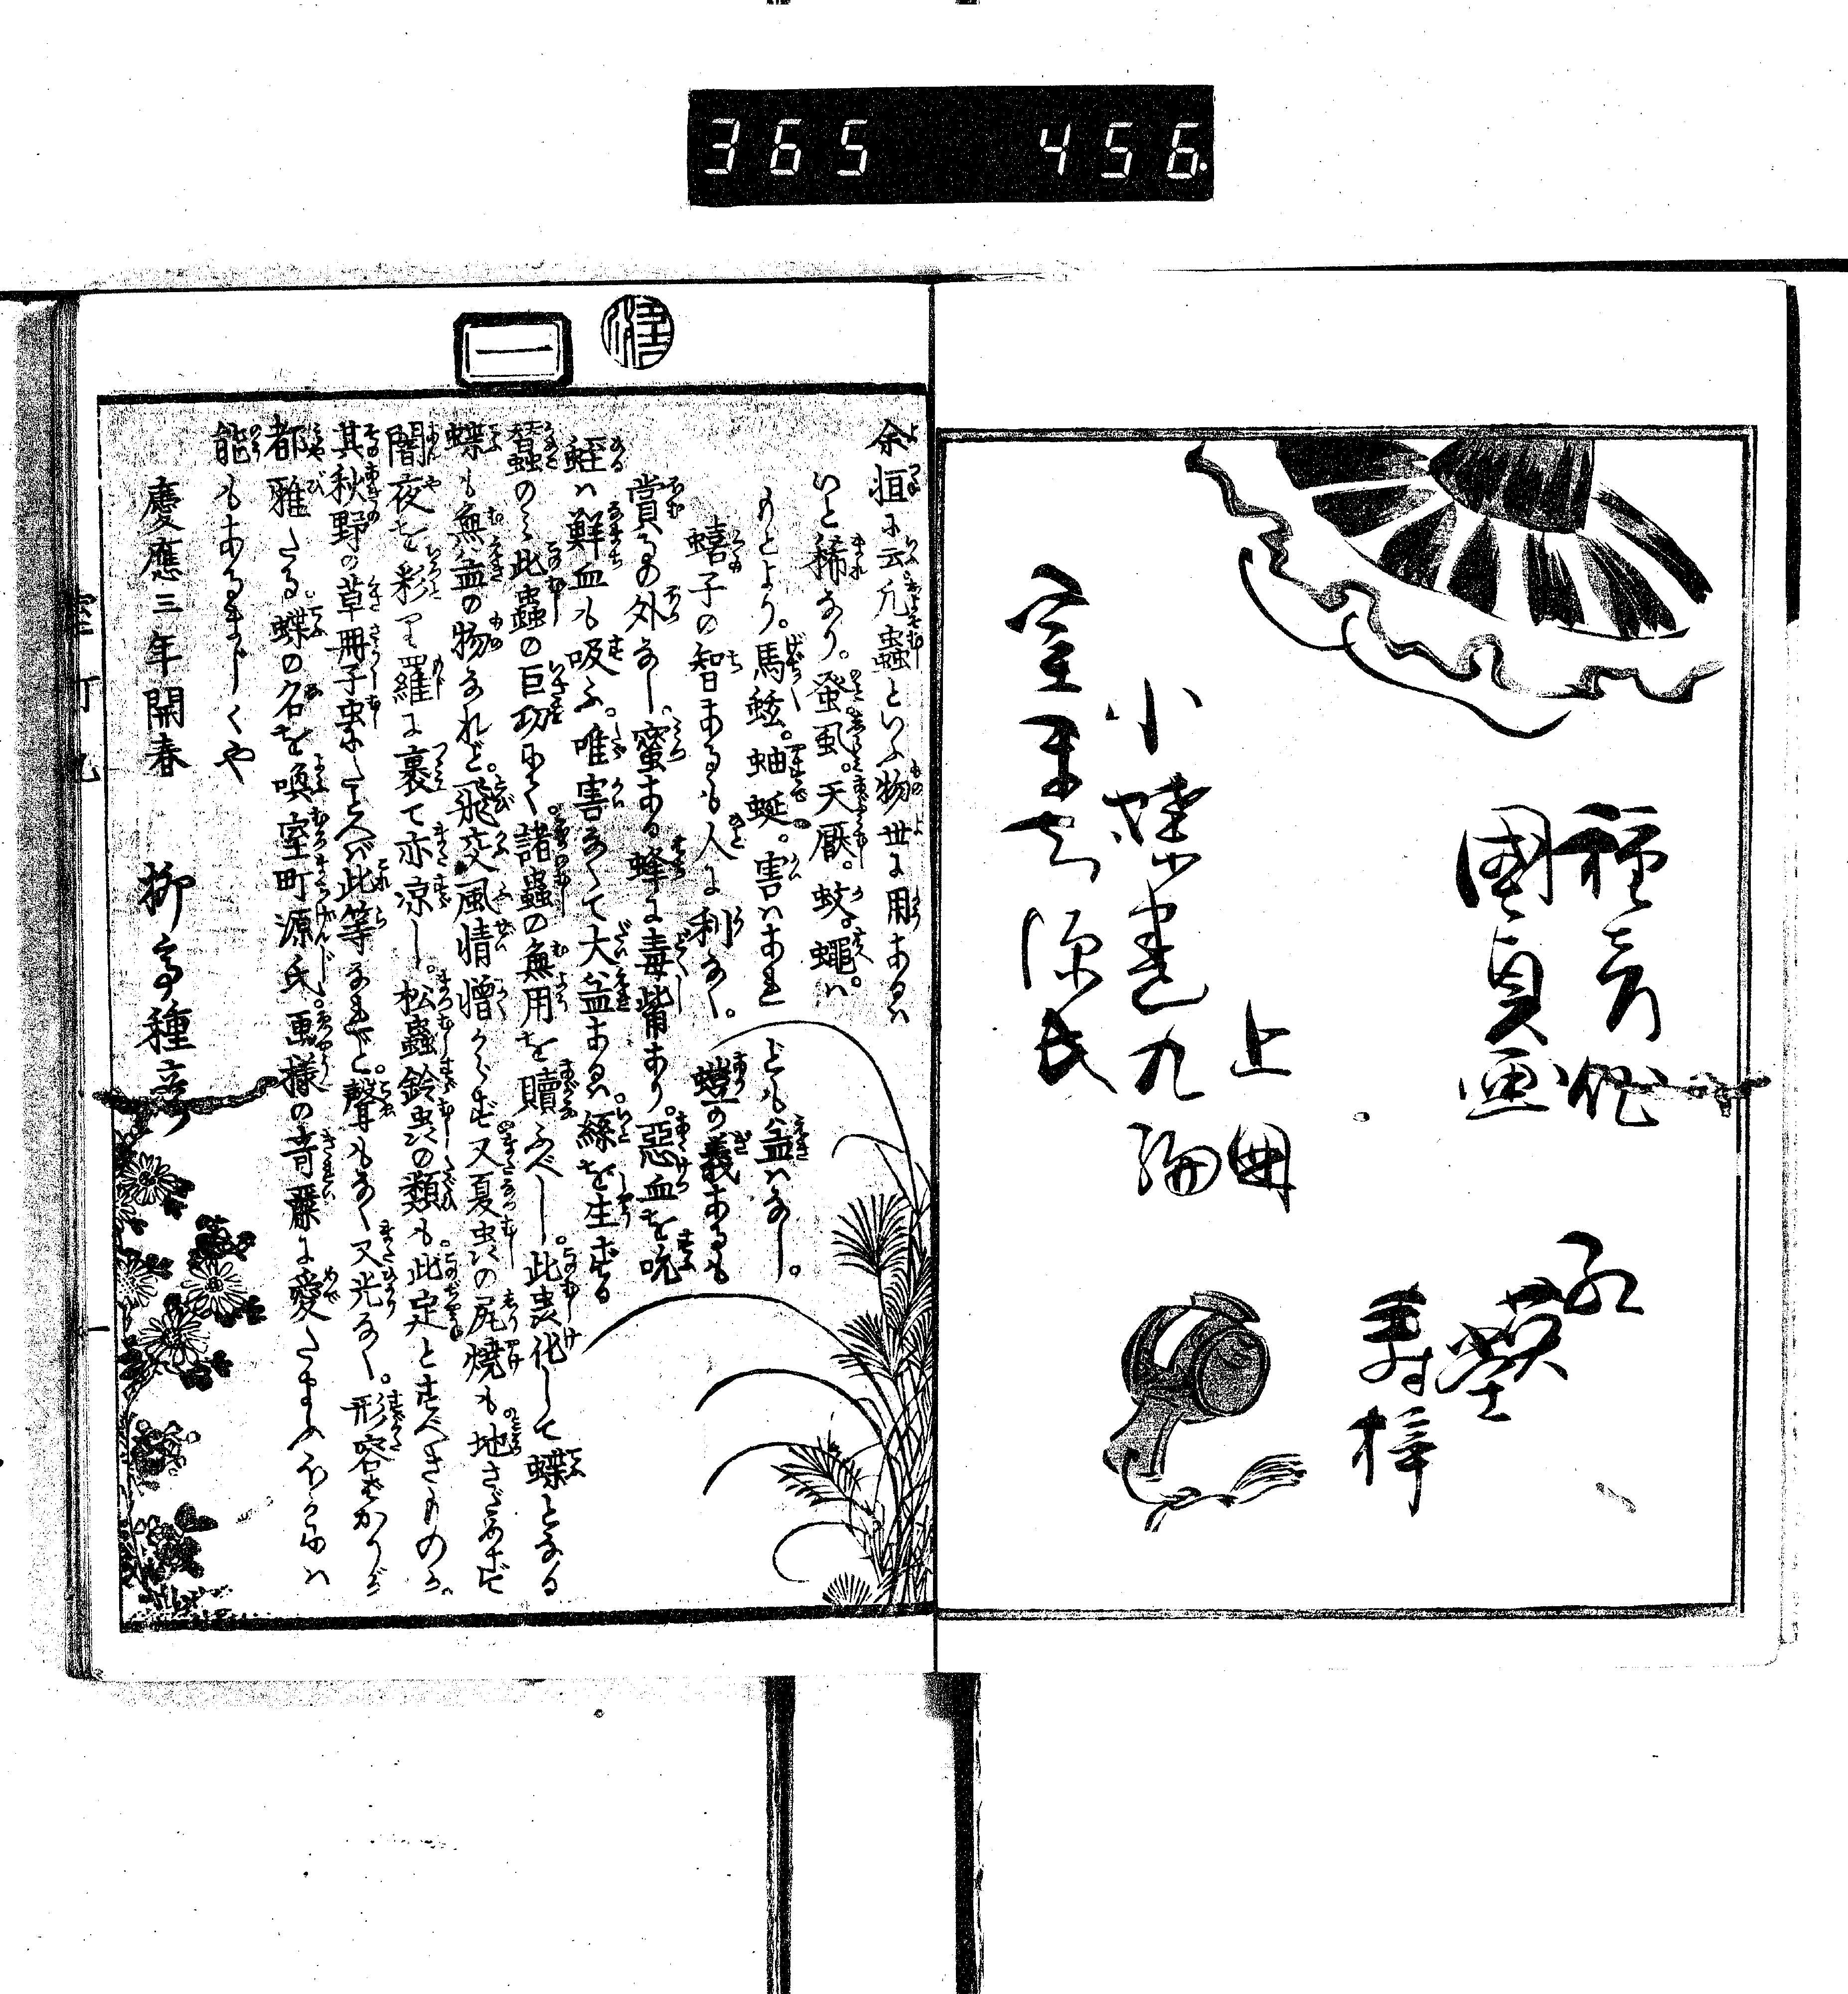 365 456
種彦作
國貞画
紅英堂
壽梓
上冊
小蝶書九編
室町源氏
一
余恒に云凡蟲といふ物世に用あるハ
いと稀なり。蚤虱。天厭。蚊。蠅。ハ
もとより。馬蚿。蚰蜒。害ハあれども益ハなし。
蟢子の智あるも人に利なし。螳の義あるも
賞るの外なし。蜜ある蜂に毒觜あり。惡血を吮
蛭ハ鮮血も吸ふ。唯害なくて大益あるハ。絲を生ずる
蠶のミ此蟲の巨功にて。諸蟲の無用を贖ふべし。此虫化して蝶となる
蝶も無益の物なれど。飛交風情憎からず又夏虫の尻焼も地さだめず
闇夜を彩り羅に裹て亦凉し。松蟲鈴虫の類も。此定とすべきものか。
其秋野の草冊子虫にたとへバ此等なれど。聲もなく又光なし。形容ばかりが
都雅たる蝶の名を喚室町源氏。画様の竒麗に愛たまふハ
能もあるまじくや
慶應三年開春 柳亭種彦